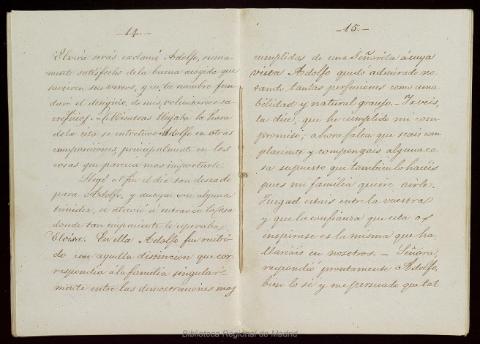 —14.—
Eloisa serás exclamó Adolfo, suma-
mente satisfecho de la buena acogida que
tuvieron sus versos, y en tu nombre fun-
daré el designio de mis voluntarios sa-
crificios.— Mientras llegaba la hora
de la cita se entretuvo Adolfo en otras
composiciones, principalmente en las
cosas que parecía mas importarle.
Llegó al fin el dia tan deseado
para Adolfo, y aunque con alguna
timidez, se atrevió á entrar en la casa
donde tan impaciente le esperaba
Eloisa. En ella Adolfo fue recibi-
do con aquella distincion que cor-
respondia á la familia singular-
mente entre las demostraciones mas
—15.—
cumplida de una Señorita á cuya
vista Adolfo quedó admirado no-
tando tantas perfecciones como ama-
bilidad y natural gracejo. Ya veis,
la dice, que he cumplido mi com-
promiso; ahora falta que seais com-
placiente y compongais alguna co-
sa supuesto que tambien lo haceis
pues mi familia quiere oirlo.
Juzgad estais entre la vuestra
y que la confianza que esta os
inspirase es la misma que ha-
llareis en nosotros.— Señora,
respondió prontamente Adolfo,
bien lo sé y me persuado que tal
Biblioteca Regional de Madrid